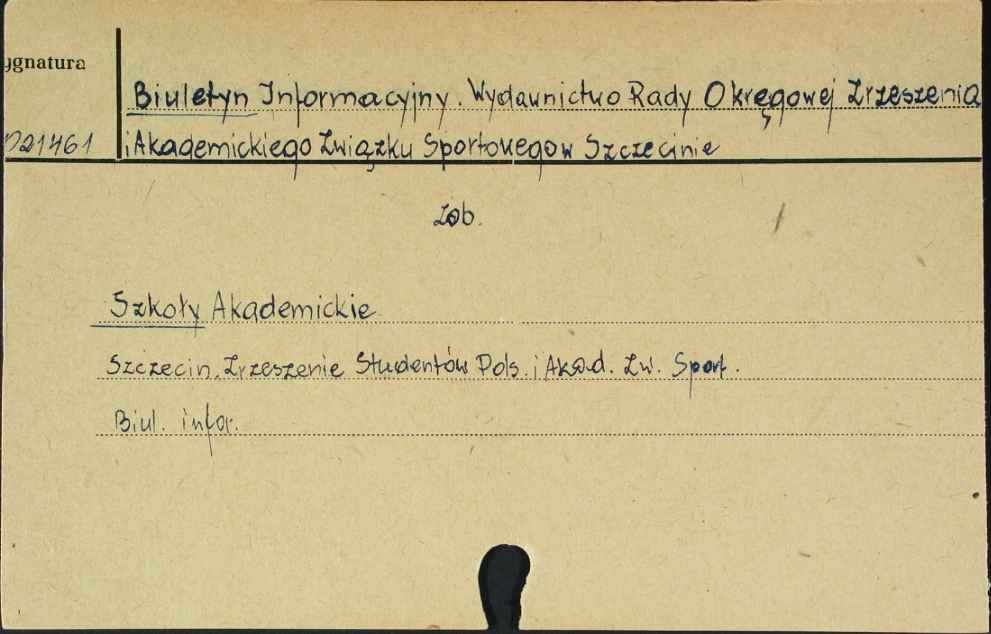 ygnatura
Biuletyn Informacyjny. Wydawnictwo Rady Okręgowej Zrzeszenia
P21461
i Akademickiego Związku Sportowego w Szczecinie
Zob.
Szkoły Akademickie
Szczecin. Zrzeszenie Studentów Pols. i Akad. Zw. Sport.
Biul. infor.